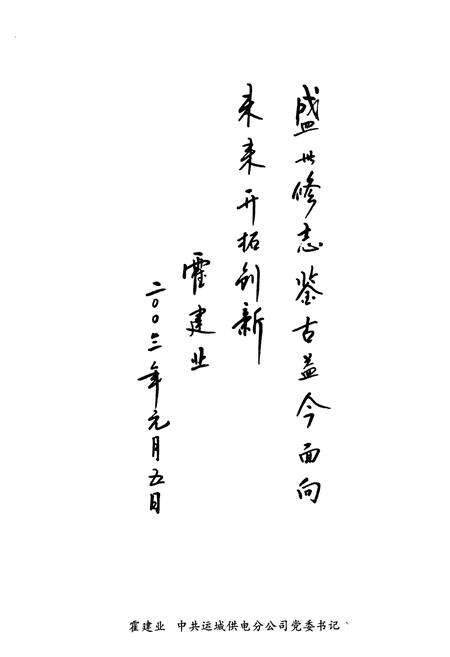 盛世修志鉴古益今面向
未来开拓创新
霍建业
二〇〇三年元月五日
霍建业 中共运城供电分公司党委书记